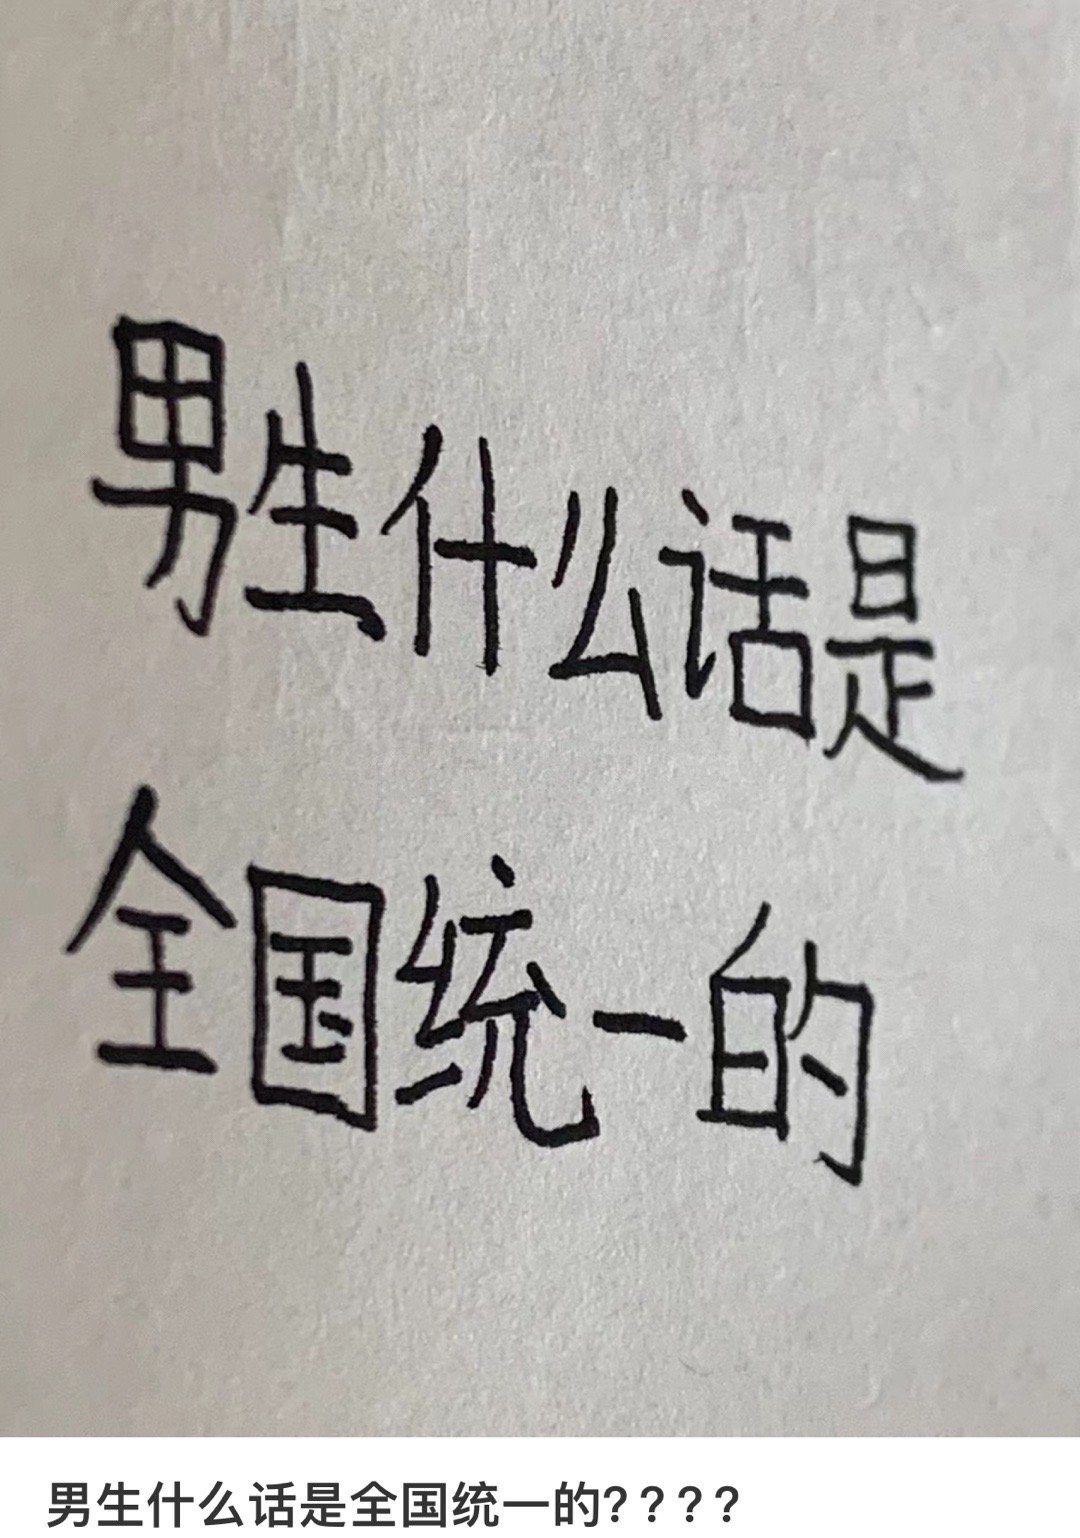 男生什么话是
全国统一的
男生什么话是全国统一的？？？？